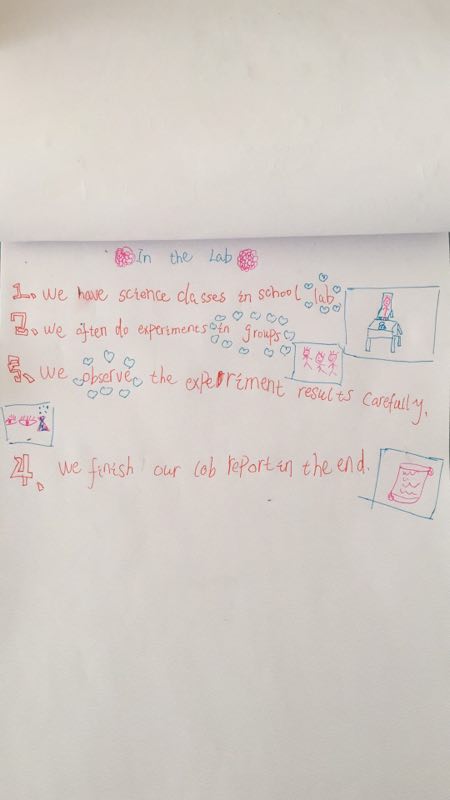 In the Lab
1. We have science classes in school lab
2. We often do experiments in groups
3. We observe the experriment results carefully.
4. We finish our lab report in the end.